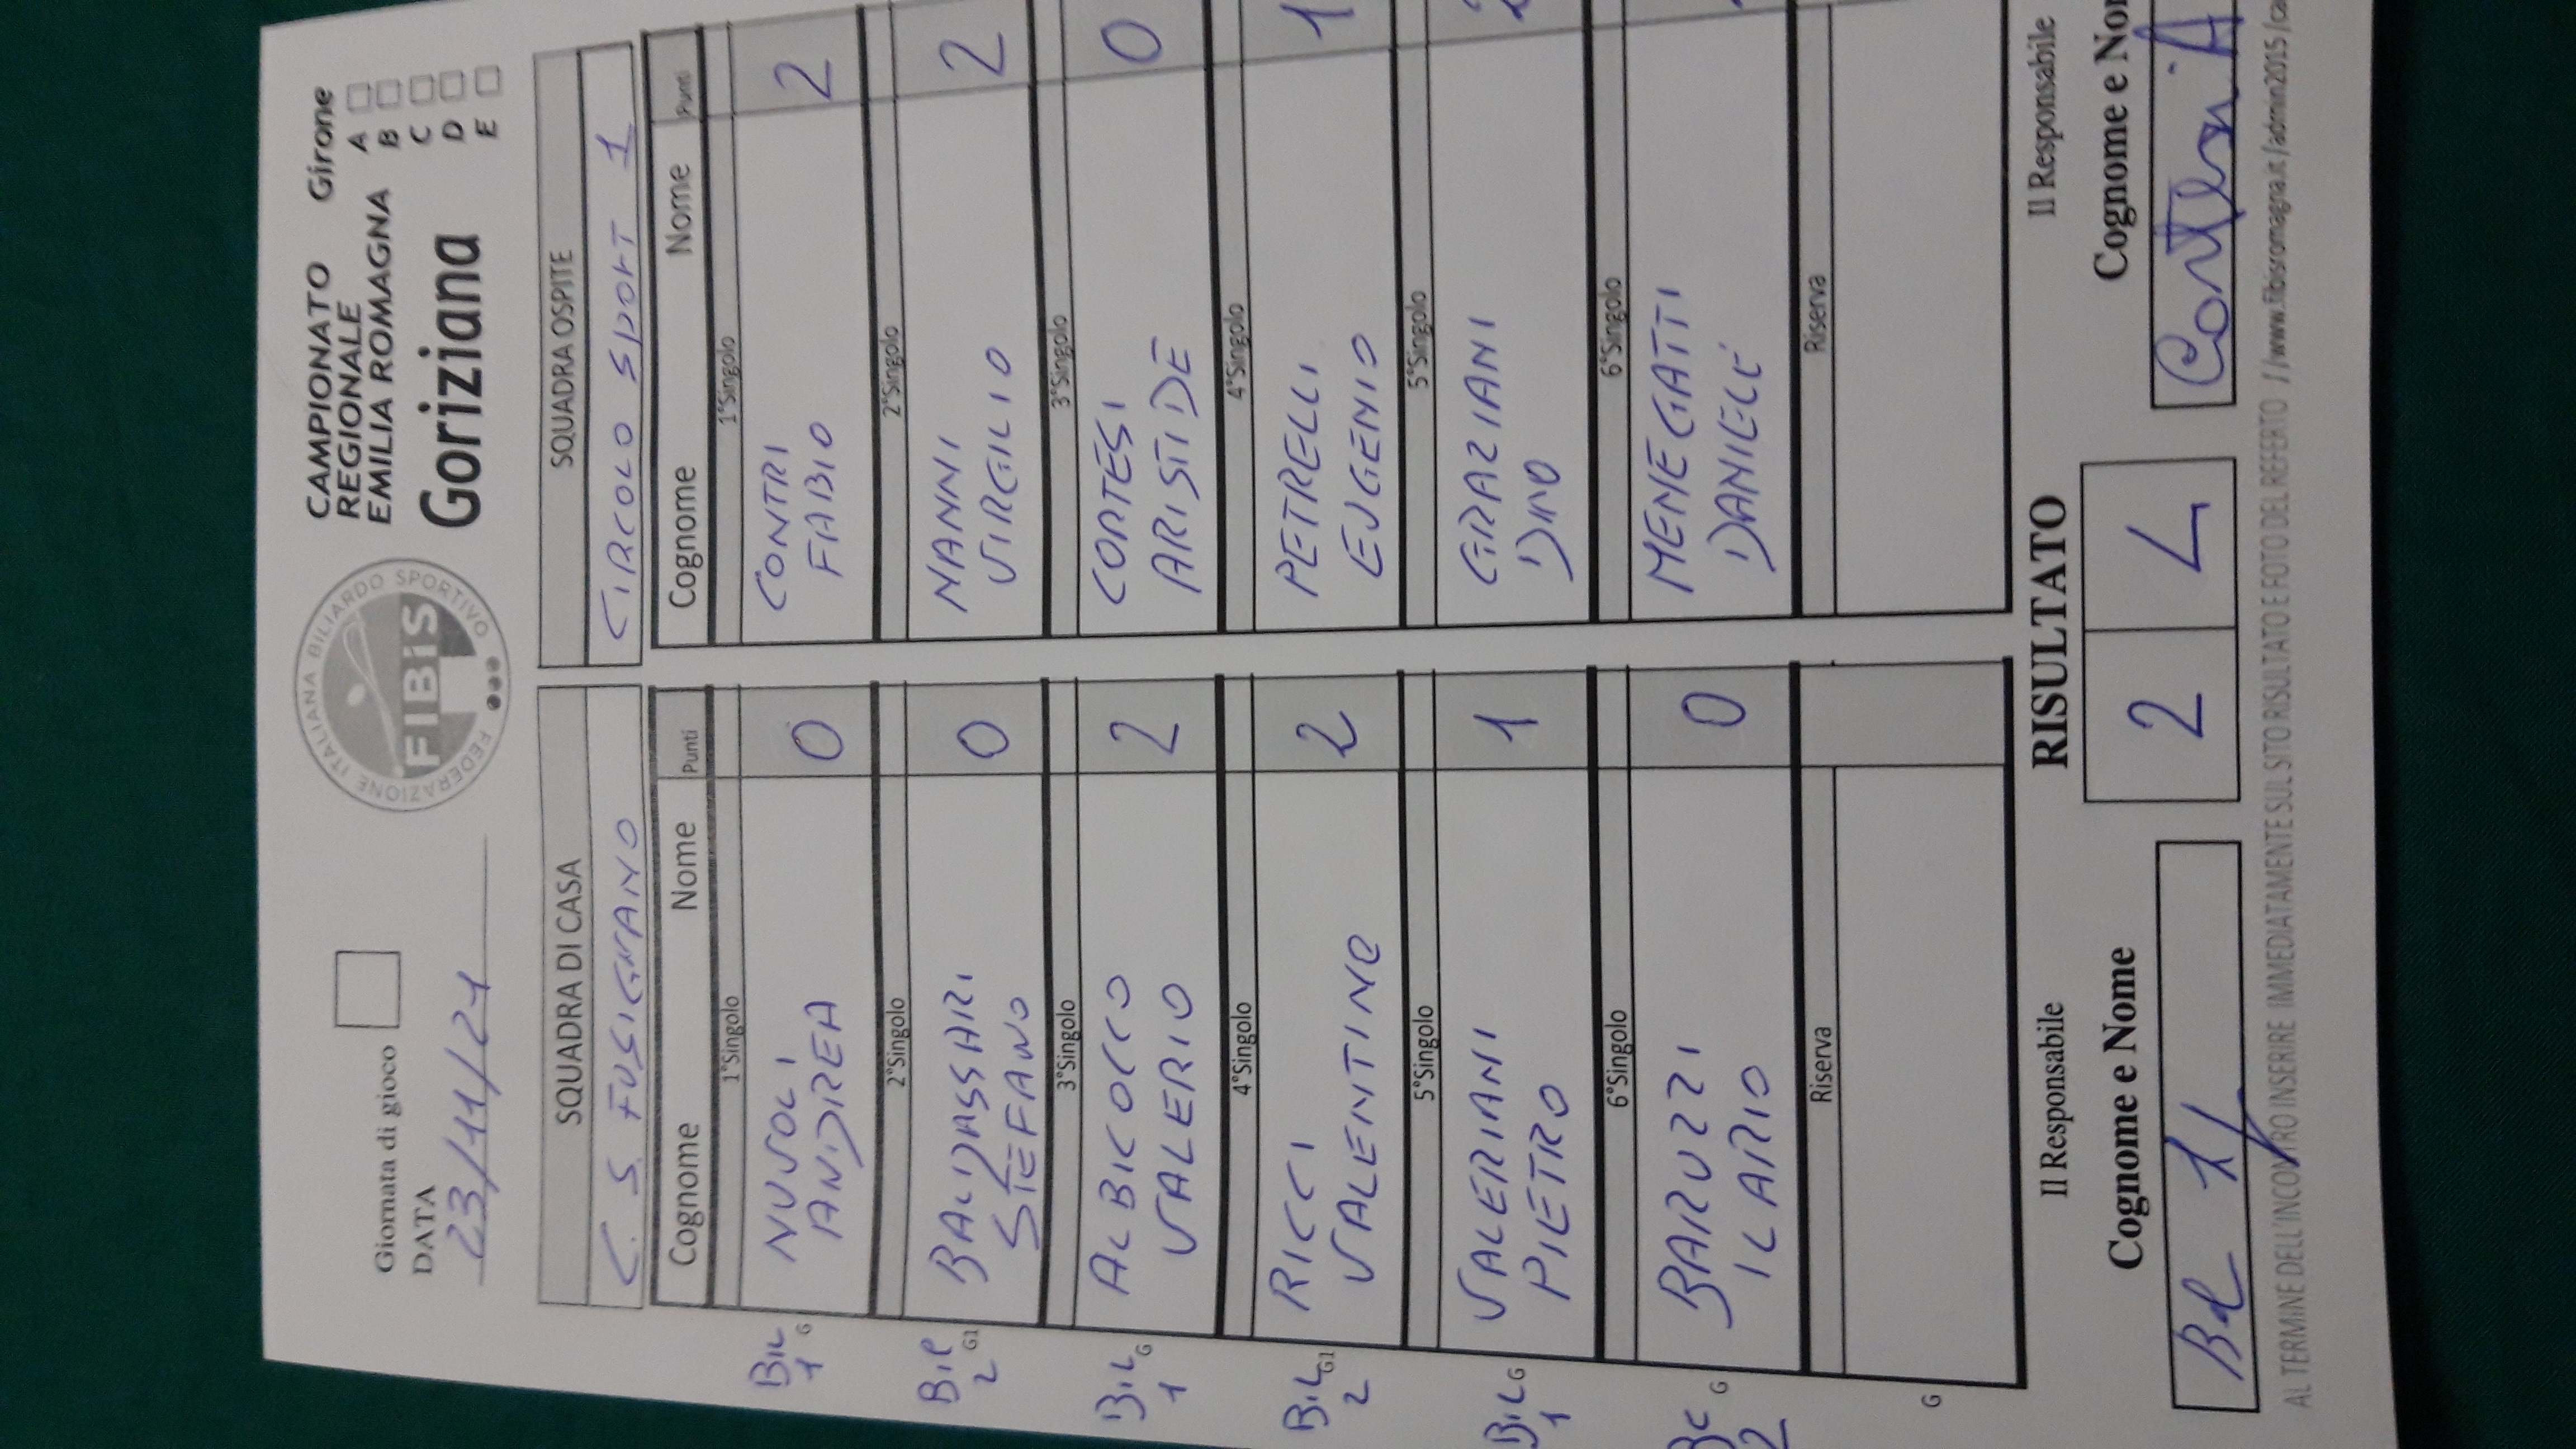 Giornata di gioco
DATA
23/11/21
FEDERAZIONE ITALIANA BILIARDO SPORTIVO
FIBiS
CAMPIONATO
REGIONALE
EMILIA ROMAGNA
Goriziana
Girone
A
B
C
D
E
SQUADRA DI CASA
C. S. FUSIGNANO
Cognome Nome Punti
1°Singolo
BIL 1 G
NUVOLI
ANDREA
0
2°Singolo
BIL 2 G1
BALDASSARI
STEFANO
0
3°Singolo
BIL 1 G
ALBICOCCO
VALERIO
2
4°Singolo
BIL 2 G1
RICCI
VALENTINO
2
5°Singolo
BIL 1 G
VALERIANI
PIETRO
1
6°Singolo
2 G
BARUZZI
ILARIO
0
Riserva
G
SQUADRA OSPITE
CIRCOLO SPORT 1
Cognome Nome Punti
1°Singolo
CONTRI
FABIO
2
2°Singolo
NANNI
VIRGILIO
2
3°Singolo
CORTESI
ARISTIDE
0
4°Singolo
PETRELLI
EUGENIO
1
5°Singolo
GRAZIANI
DINO
6°Singolo
MENEGATTI
DANIELE
Riserva
Il Responsabile
Cognome e Nome
RISULTATO
2 4
Il Responsabile
Cognome e Nom
AL TERMINE DELL'INCONTRO INSERIRE IMMEDIATAMENTE SUL SITO RISULTATO E FOTO DEL REFERTO //www.fibisromagna.it/admin2015/ca